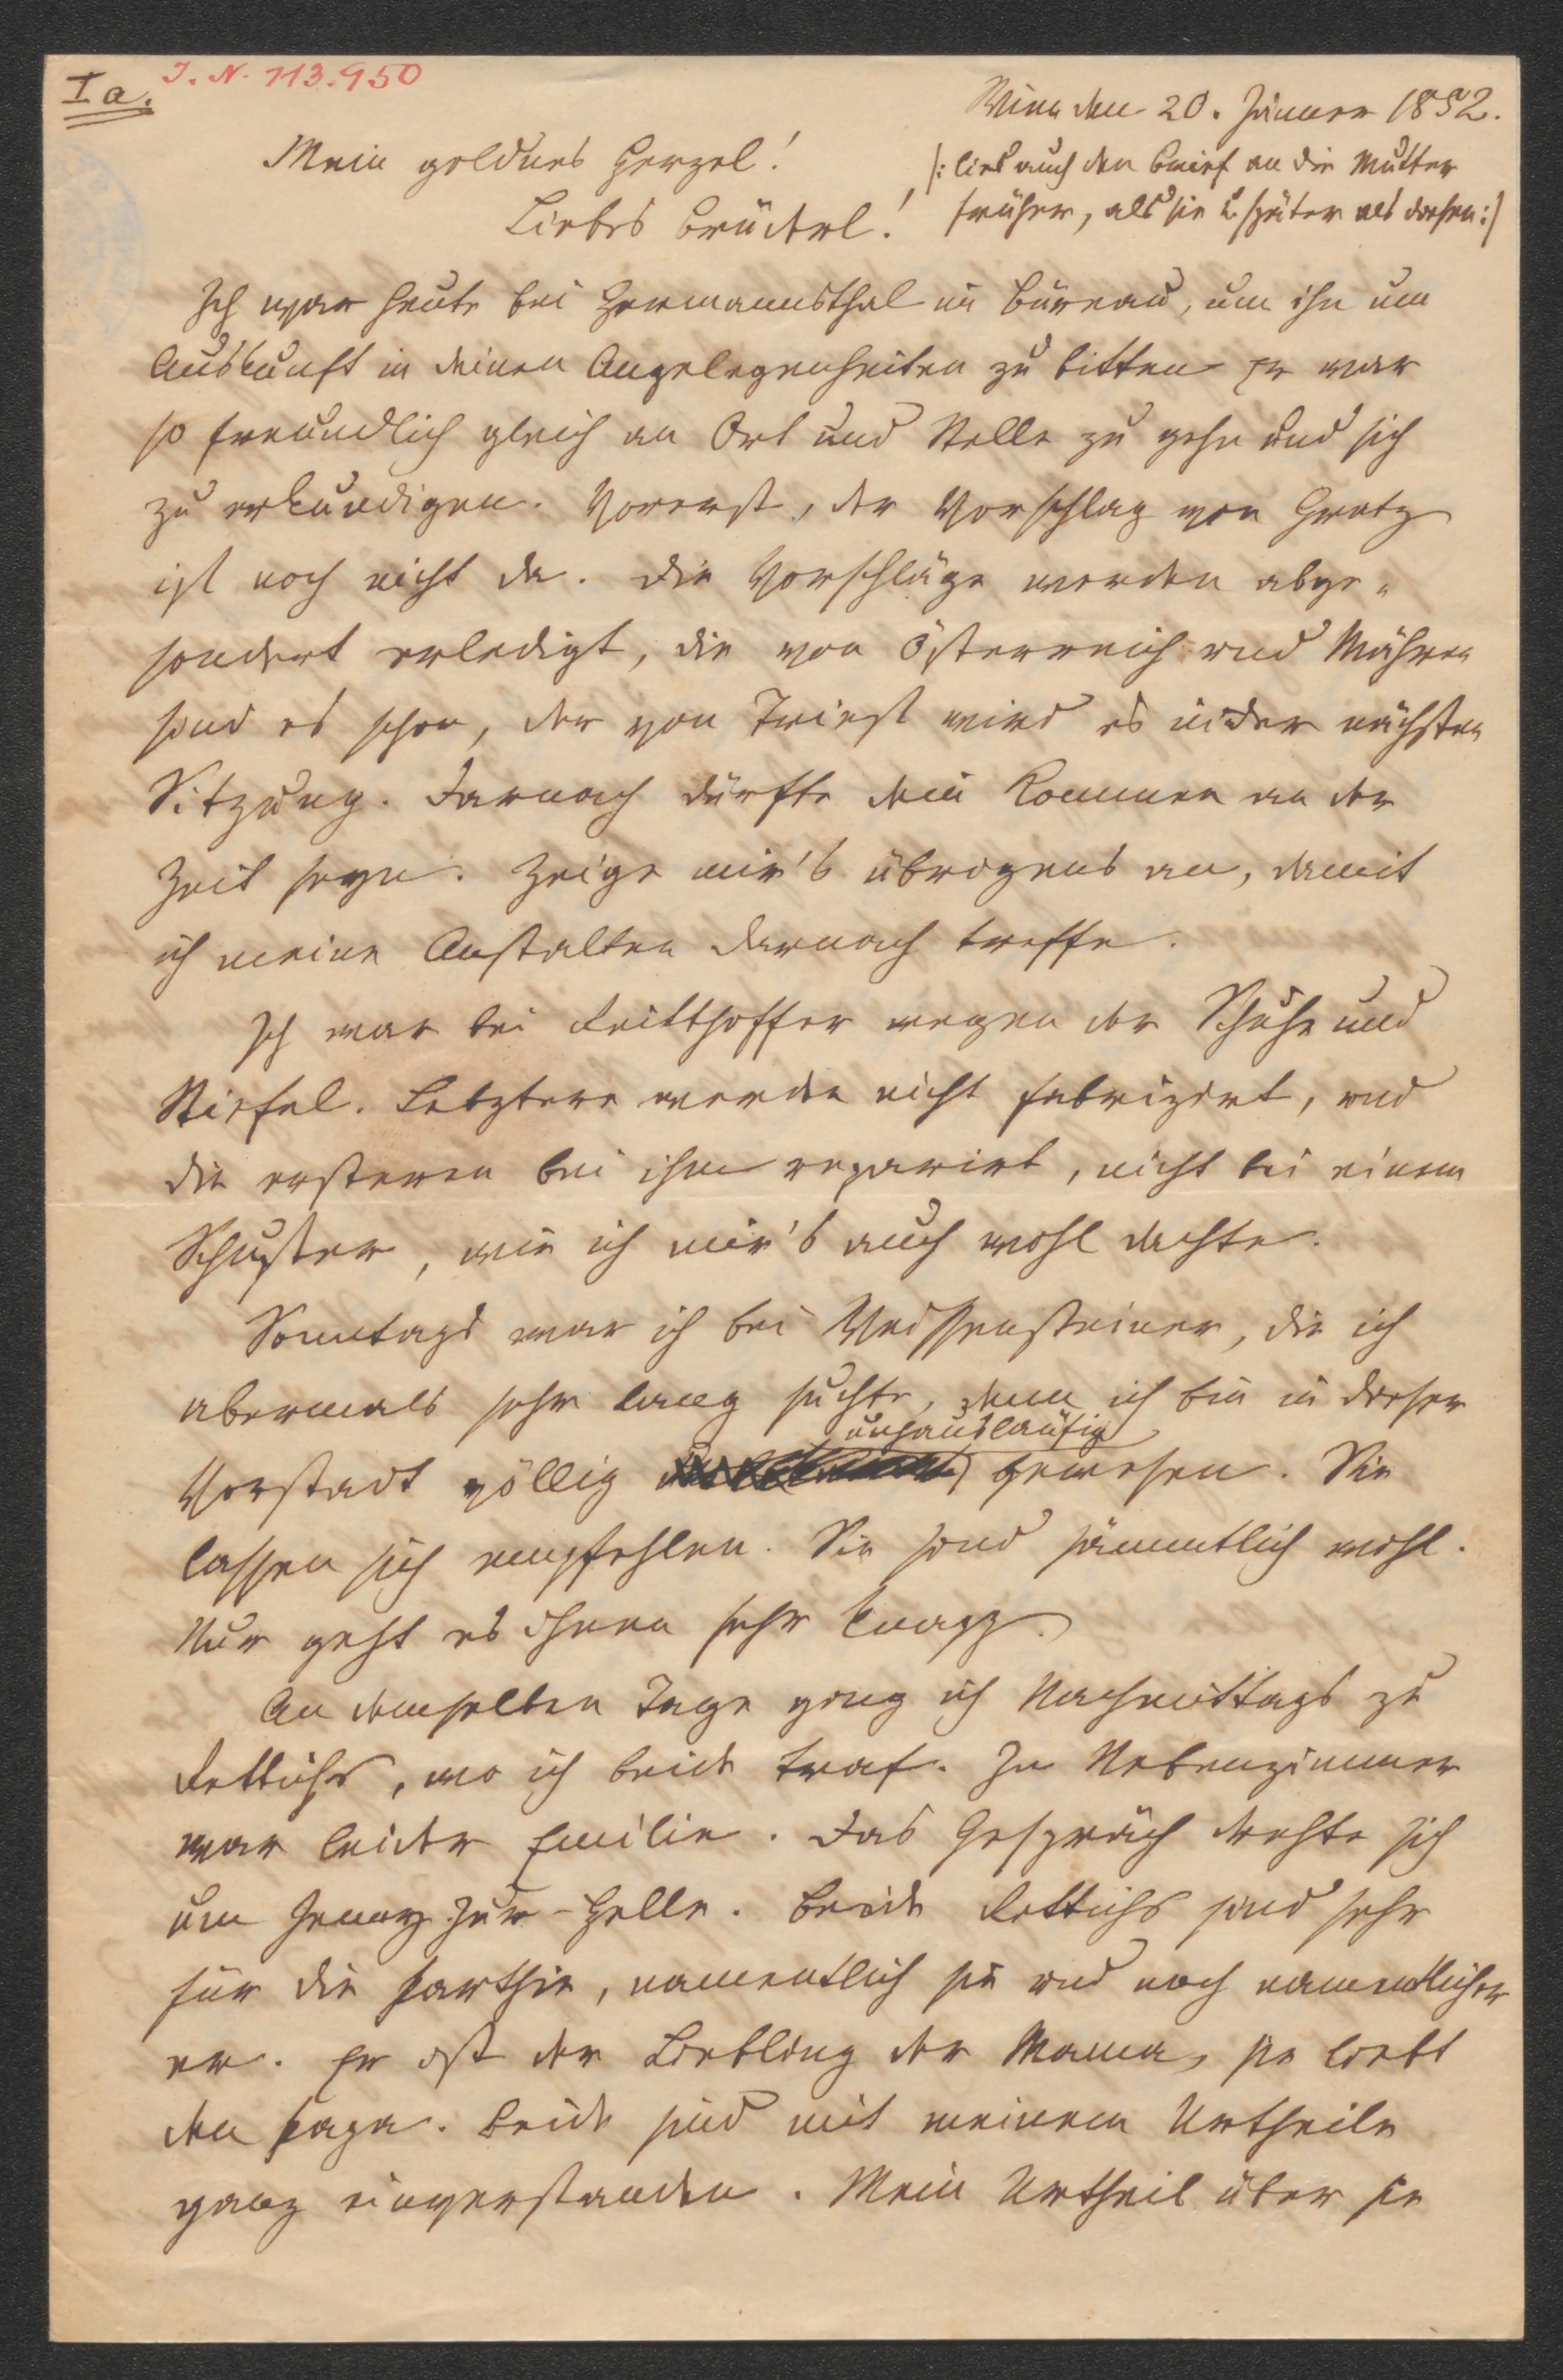 Ia.
I. N. 113.950
Wien den 20. Jänner 1852.
Mein goldnes Herzel!
/: lies auch den Brief an die Mutter
Liebes Brüderl!
früher, als sie u. später als diesen :/
Ich war heute bei Hermannsthal im Büreau, um ihn um
Auskunft in deinen Angelegenheiten zu bitten. Er war
so freundlich gleich an Ort und Stelle zu gehn und sich
zu erkundigen. Vorerst, der Vorschlag von Gratz
ist noch nicht da. Die Vorschläge werden abge-
sondert erledigt, die von Österreich und Mähren
sind es schon, der von Triest wird es in der nächsten
Sitzung. Darnach dürfte dein Kommen an der
Zeit seyn. Zeige mir's übrigens an, damit
ich meine Anstalten darnach treffe.
Ich war bei Reitthoffer wegen der Schuhe und
Stiefel. Letztere werden nicht fabrizirt, und
die ersteren bei ihm reparirt, nicht bei einem
Schuster, wie ich mir's auch wohl dachte.
Sonntags war ich bei Weissensteiner, die ich
abermals sehr lang suchte, denn ich bin in dieser
unhausläufig
Vorstadt völlig gewesen. Sie
lassen sich empfehlen. Sie sind sämmtlich wohl.
Nur geht es ihnen sehr knapp.
An demselben Tage ging ich Nachmittags zu
Rettichs, wo ich beide traf. Im Nebenzimmer
war leider Emilie. Das Gespräch drehte sich
um Jenny zur-Helle. Beide Rettichs sind sehr
für die Parthie, namentlich sie und noch namentlicher
er. Er ist der Liebling der Mama, sie liebt
den Papa. Beide sind mit meinem Urtheile
ganz einverstanden. Mein Urtheil über sie